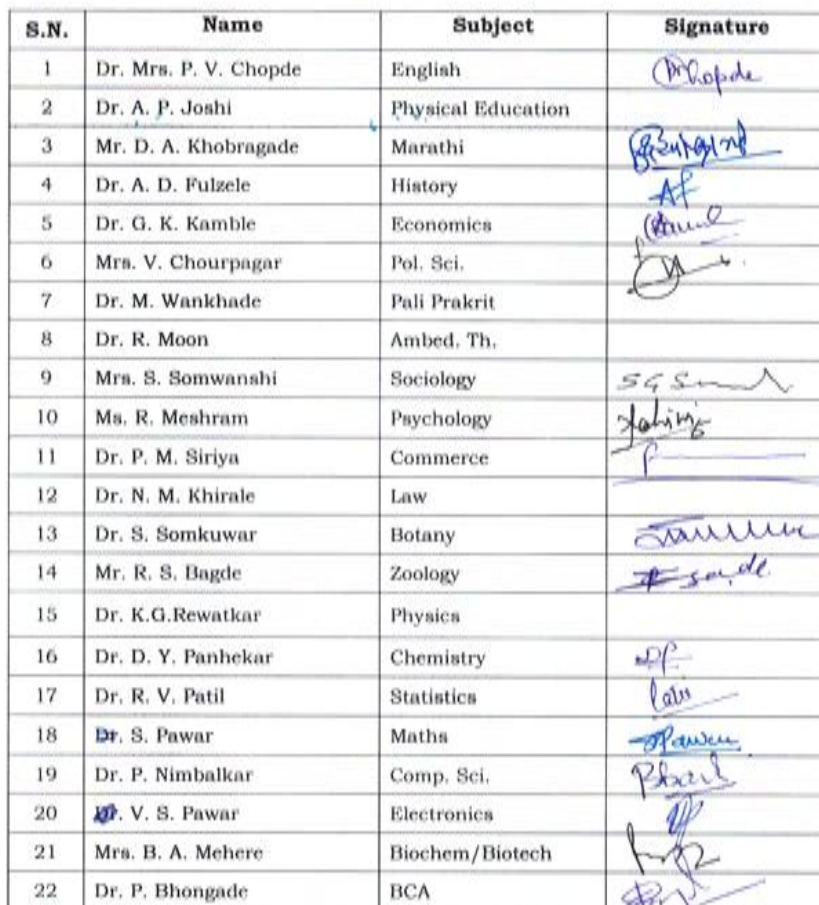 S.N. Name Subject Signature
1 Dr. Mrs. P. V. Chopde English Chopde
2 Dr. A. P. Joshi Physical Education
3 Mr. D. A. Khobragade Marathi
4 Dr. A. D. Fulzele History
5 Dr. G. K. Kamble Economics
6 Mrs. V. Chourpagar Pol. Sci.
7 Dr. M. Wankhade Pali Prakrit
8 Dr. R. Moon Ambed. Th.
9 Mrs. S. Somwanshi Sociology
10 Ms. R. Meshram Psychology
11 Dr. P. M. Siriya Commerce
12 Dr. N. M. Khirale Law
13 Dr. S. Somkuwar Botany
14 Mr. R. S. Bagde Zoology
15 Dr. K.G.Rewatkar Physics
16 Dr. D. Y. Panhekar Chemistry
17 Dr. R. V. Patil Statistics
18 Dr. S. Pawar Maths
19 Dr. P. Nimbalkar Comp. Sci.
20 V. S. Pawar Electronics
21 Mrs. B. A. Mehere Biochem/Biotech
22 Dr. P. Bhongade BCA